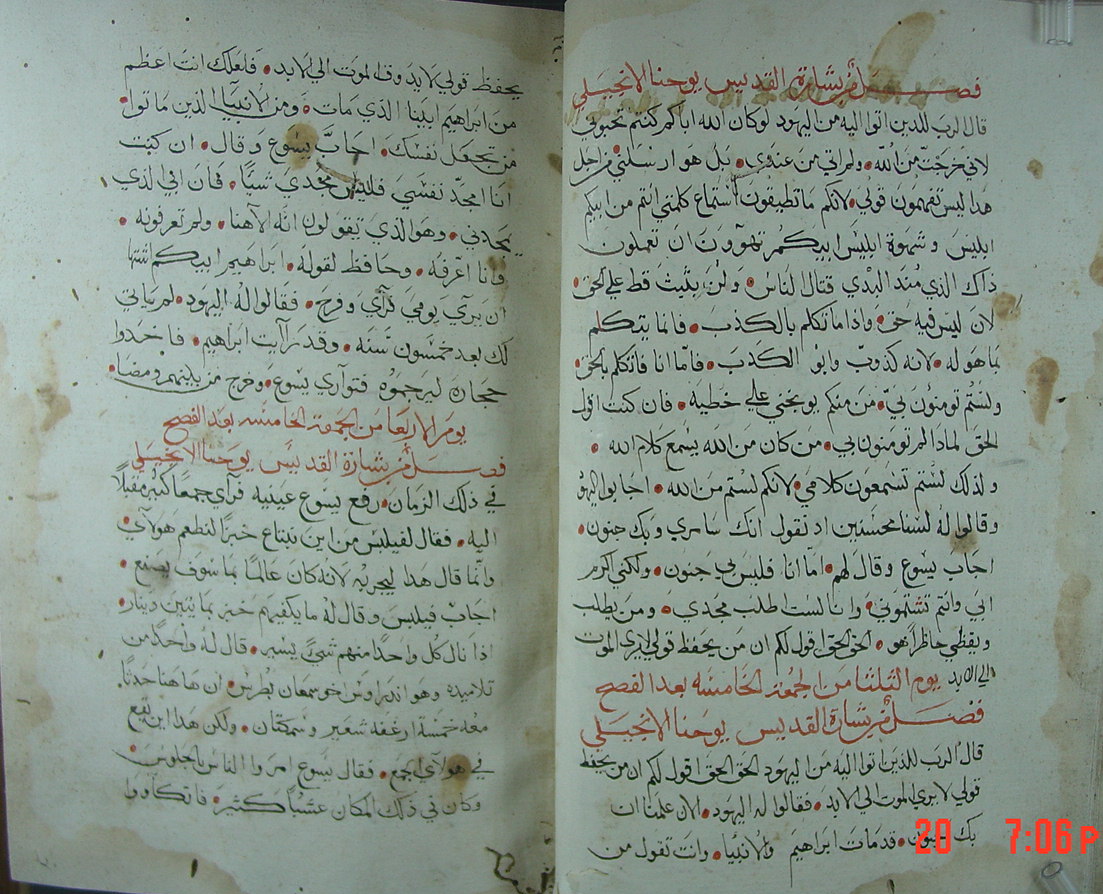 فصل من بشارة القديس يوحنا الانجيلي
قال الرب للذين اتوا اليه من اليهود لو كان الله اباكم كنتم تحبوني
لاني خرجت من الله ولم اتي من عندي بل هو ارسلني فمن اجل
هذا ليس تفهمون قولي لانكم ما تطيقون استماع كلمتي انتم من ابيكم
ابليس وشهوة ابليس ابيكم تهوون ان تعملون
ذاك الذي منذ البدي قتال لناس ولن يلبث قط علي الحق
لان ليس فيه حق واذا ما تكلم بالكذب فانما يتكلم
بما هو له لانه كذوب وابو الكذب فاما انا فاتكلم بالحق
ولستم تومنون بي من منكم يوبخني علي خطية فان كنت اقول
الحق لماذا لم تومنون بي من كان من الله يسمع كلام الله
ولذلك لستم تستمعون كلامي لانكم لستم من الله اجابوا اليهود
وقالوا له لسنا محسنين اذ نقول انك سامري وبك جنون
اجاب يسوع وقال لهم اما انا فليس بي جنون ولكني اكرم
ابي وانتم تشتموني وانا لست اطلب مجدي ومن يطلب
هو الحق الحق اقول لكم ان من يحفظ قولي لا يري الموت
الي الابد يوم الثلثا من الجمعة الخامسه بعد الفصح
فصل من بشارة القديس يوحنا الانجيلي
قال الرب للذين اتوا اليه من اليهود الحق الحق اقول لكم ان من يحفظ
قولي لا يري الموت الي الابد فقالوا له اليهود الان علمنا ان
بك جنون قد مات ابراهيم والانبيا وانت تقول من
يحفظ قولي لا يدوق الموت الي الابد فلعلك انت اعظم
من ابراهيم ابينا الذي مات ومن الانبيا الذين ماتوا
من تجعل نفسك اجاب يسوع وقال ان كنت
انا امجد نفسي فليس مجدي شيا فان ابي الذي
يمجدني وهو الذي تقولون انه الاهنا ولم تعرفونه
وانا اعرفه وحافظ لقوله ابراهيم ابيكم اشتها
ان يري يومي فراي وفرح فقالوا له اليهود لم ياتي
لك بعد خمسون سنه وقد رايت ابراهيم فاخدوا
حجاره ليرجموه فتواري يسوع وخرج من بينهم ومضا
يوم الاربعا من الجمعة الخامسه بعد الفصح
فصل من بشارة القديس يوحنا الانجيلي
في ذلك الزمان رفع يسوع عينيه فراي جمعا كثير مقبلا
اليه فقال لفيلبس من اين نبتاع خبزا لنطعم هولاي
وانما قال هدا ليجربه لانه كان عالما بما سوف يصنع
اجاب فيلبس وقال له ما يكفيهم خبز بمايتين دينار
اذا نال كل واحدا منهم شي يسير قال له واحدا من
تلاميده وهو اندراوس اخو سمعان بطرس ان هاهنا حدثا
معه خمسة ارغفه شعير وسمكتان ولكن هدا اين يقع
في هولاي الجمع فقال يسوع امروا الناس بالجلوس
وكان في ذلك المكان عشبا كثير فاتكاووا
20 7:06 P